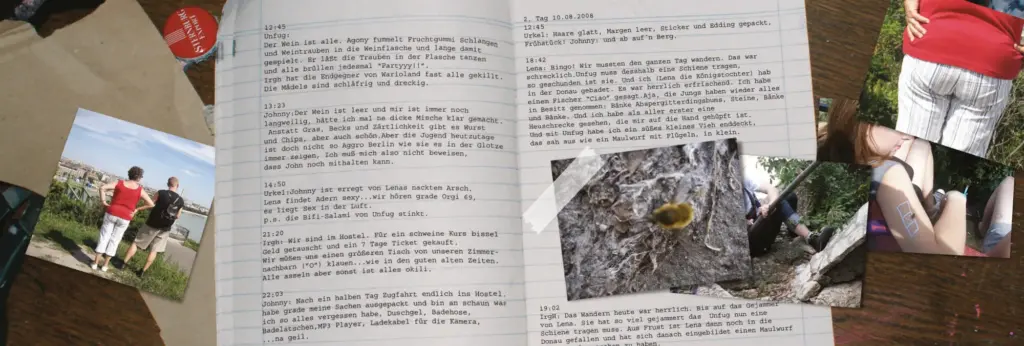 STERNBURG EXPORT
12:45
Unfug:
Der Wein ist alle. Agony fummelt Fruchtgummi Schlangen
und Weintrauben in die Weinflasche und lange damit
gespielt. Er läßt die Trauben in der Flasche tanzen
und alle brüllen jedesmal "Partyyy!!".
Irgh hat die Endgegner von Warioland fast alle gekillt.
Die Mädels sind schläfrig und dreckig.
13:23
Johnny:Der Wein ist leer und mir ist immer noch
langweilig, hätte ich mal ne dicke Mische klar gemacht.
Anstatt Gras, Becks und Zärtlichkeit gibt es Wurst
und Chips, aber auch schön.Aber die Jugend heutzutage
ist doch nicht so Aggro Berlin wie sie es in der Glotze
immer zeigen. Ich muß mich also nicht beweisen,
dass John noch mithalten kann.
14:50
Urkel:Johnny ist erregt von Lenas nacktem Arsch,
Lena findet Adern sexy...wir hören grade Orgi 69,
es liegt Sex in der Luft.
p.s. die Bifi-Salami von Unfug stinkt.
21:20
Irgh: Wir sind im Hostel. Für ein schweine Kurs bissel
Geld getauscht und ein 7 Tage Ticket gekauft.
Wir mößen uns einen größeren Tisch von unseren Zimmer-
nachbarn ("O") klauen...wie in den guten alten Zeiten.
Alle asseln aber sonst ist alles okili.
22:03
Johnny: Nach ein halben Tag Zugfahrt endlich ins Hostel.
habe grade meine Sachen ausgepackt und bin an schaun was
ich so alles vergessen habe. Duschgel, Badehose,
Badelatschen,MP3 Player, Ladekabel für die Kamera,
...na geil.
2. Tag 10.08.2008
12:45
Urkel: Haare glatt, Margen leer, Sticker und Edding gepackt,
Frühstück! Johnny: und ab auf'n Berg.
18:42
Lena: Bingo! Wir mussten den ganzen Tag wandern. Das war
schrecklich.Unfug muss desshalb eine Schiene tragen,
so geschunden ist sie. Und ich (Lena die Königstochter) hab
in der Donau gebadet. Es war herrlich erfrischend. Ich habe
einem Fischer "Ciao" gesagt.Aja, die Jungs haben wieder alles
in Besitz genommen: Bänke Absperrgitterdingsbums, Steine, Bänke
und Bänke. Und ich habe als aller erster eine
Heuschrecke gesehen, die mir auf die Hand gehüpft ist.
Und mit Unfug habe ich ein süßes kleines Vieh enddeckt,
das sah aus wie ein Maulwurf mit Flügeln. in klein.
19:02
Irgh: Das Wandern heute war herrlich. Bis auf das Gejammer
von Lena. Sie hat so viel gejammert das Unfug nun eine
Schiene tragen muss. Aus Frust ist Lena dann noch in die
Donau gefallen und hat sich danach eingebildet einen Maulwurf
zu haben.